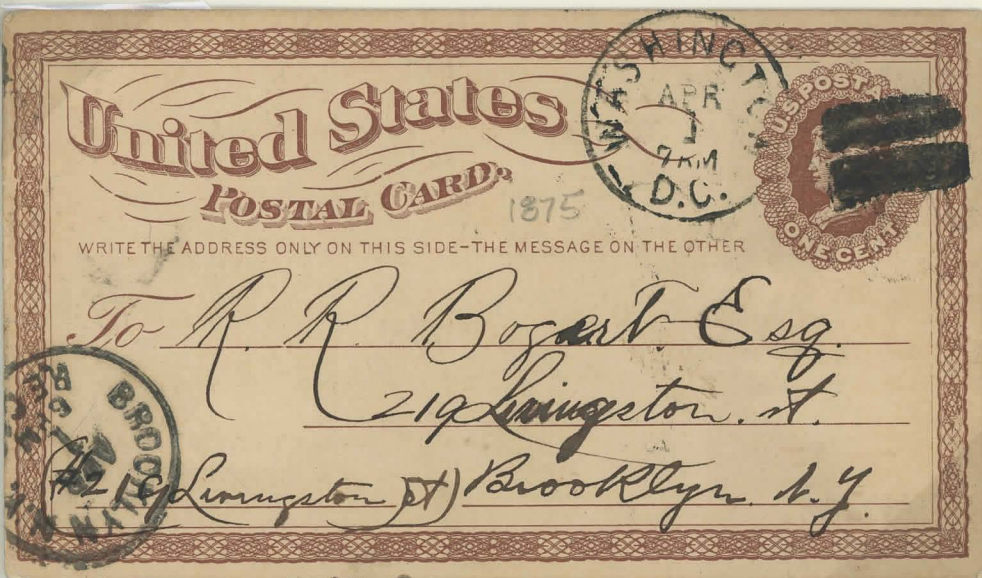 United States
POSTAL CARD.
WASHINGTON
APR
1
7 AM
D.C.
U.S. POSTA
ONE CENT
1875
WRITE THE ADDRESS ONLY ON THIS SIDE-THE MESSAGE ON THE OTHER
To R. R. Bogert. Esq.
219 Livingston. St.
(#219 Livingston St) Brooklyn. N. Y.
BROOKLYN
REC